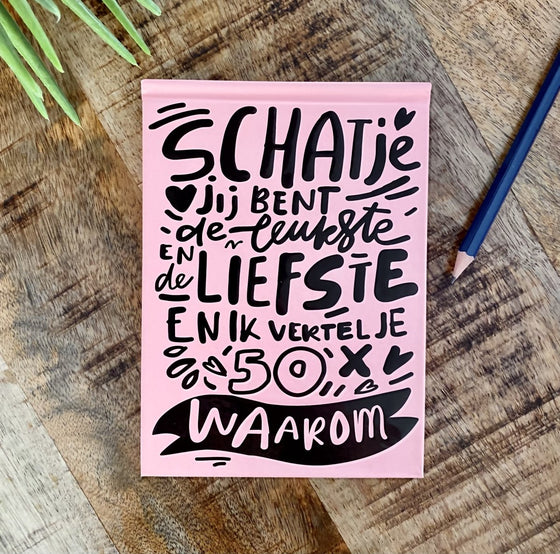 SCHATje
jij BENT
de leukste
EN de LIEFSTE
EN IK VERTEL JE
50X
WAAROM